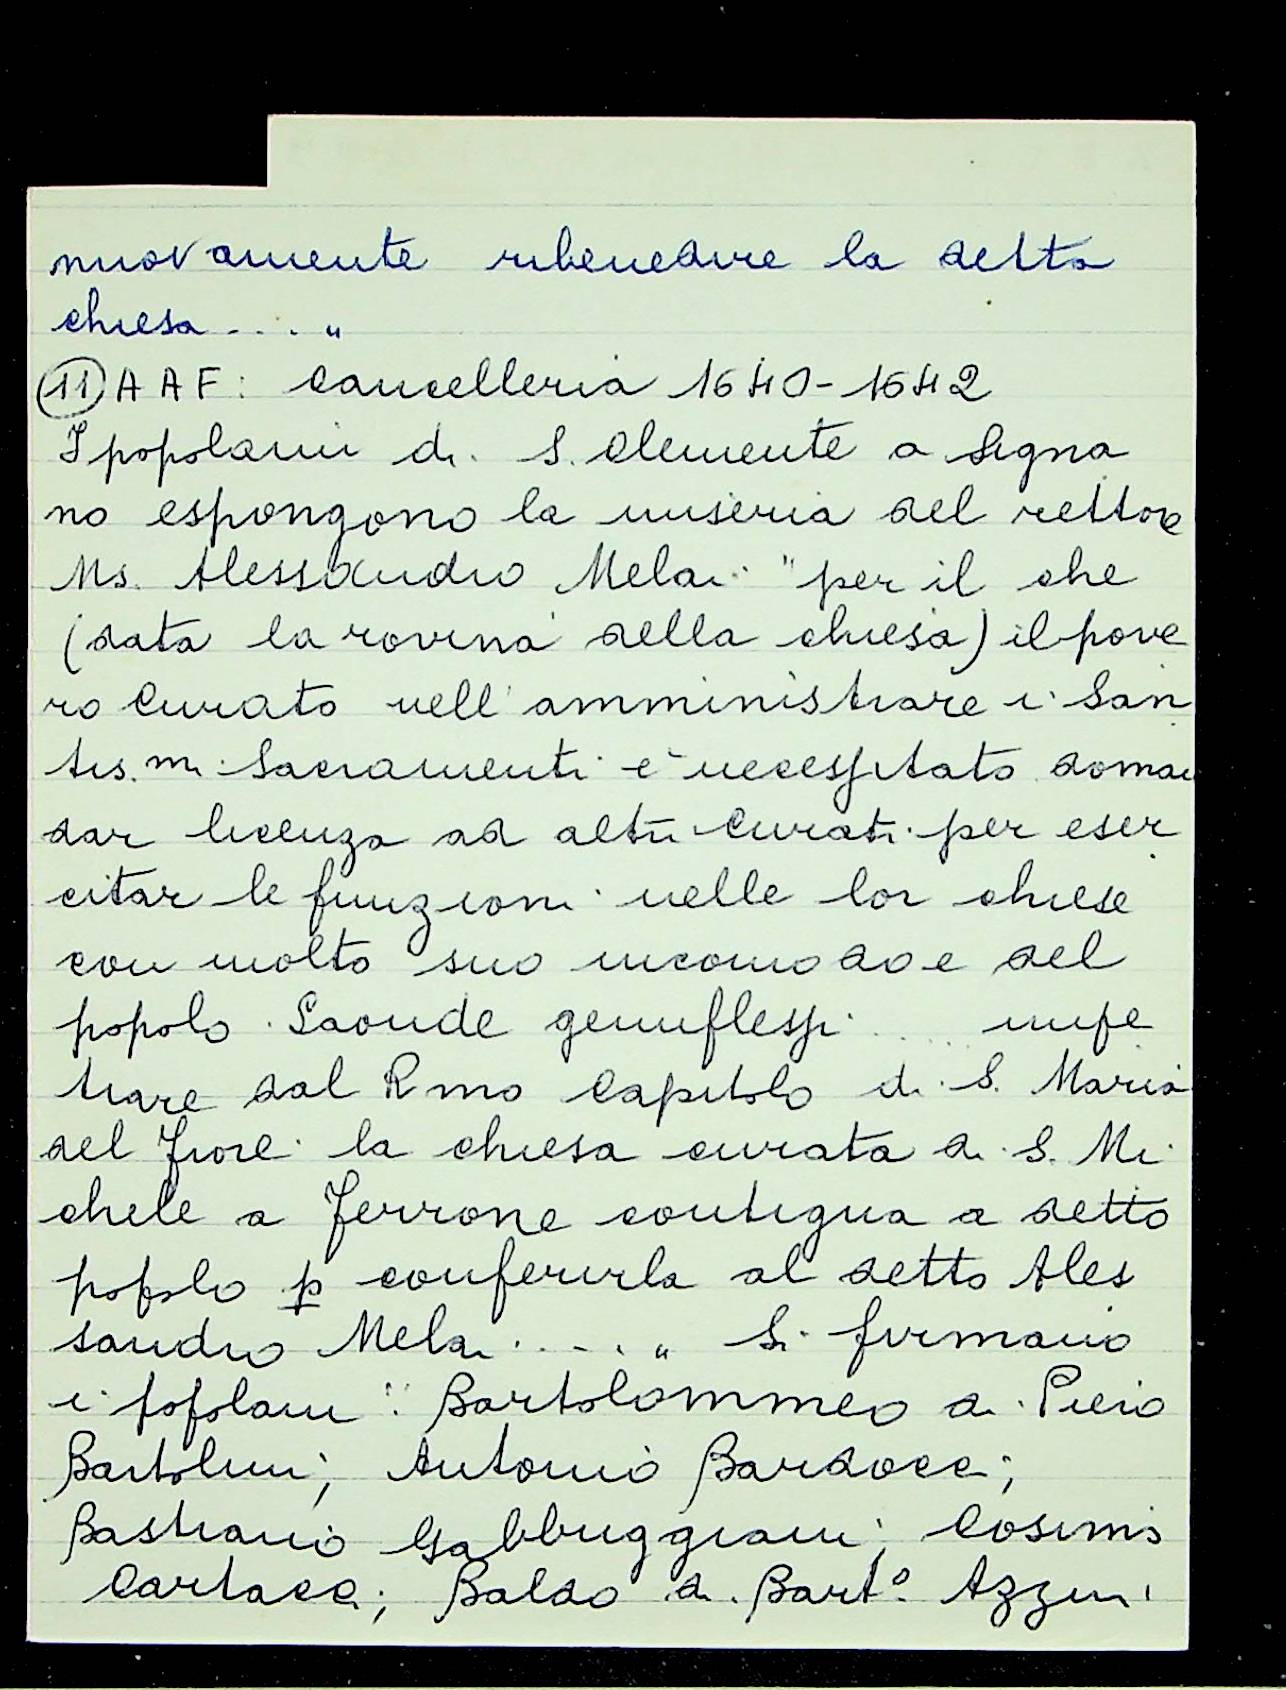 nuovamente ribenedire la detta
chiesa .... „
(11) AAF: Cancelleria 1640-1642
I popolani di S. Clemente a Signa
no espongono la miseria del rettore
Ms. Alessandro Melai "per il che
(data la rovina della chiesa) il pove
ro Curato nell'amministrare i San
tis.mi Sacramenti è necessitato doman
dar licenza ad altri Curati per eser
citar le funzioni nelle lor chiese
con molto suo incomodo e del
popolo. Laonde genuflessi .... impe
trare dal Rmo Capitolo di S. Maria
del Fiore la chiesa curata di S. Mi
chele a Ferrone contigua a detto
popolo p conferirla al detto Ales
sandro Melai .... „ Si firmano
i popolani: Bartolommeo di Piero
Bartolini; Antonio Bardocci;
Bastiano Gabbuggiani; Cosimo
Cartacci; Baldo di Barto. Azzini